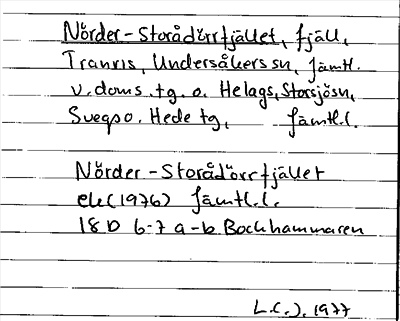 Nörder-Storådörrfjället, fjäll,
Tranris, Undersåkers sn, Jämtl.
v. doms. tg. o. Helags, Storsjö sn,
Svegs o. Hede tg, Jämtl.l.
Nörder-Storådörrfjället
ek (1976) Jämtl.l.
18 D 6-7 a-b Bockhammaren
L.C.J. 1977